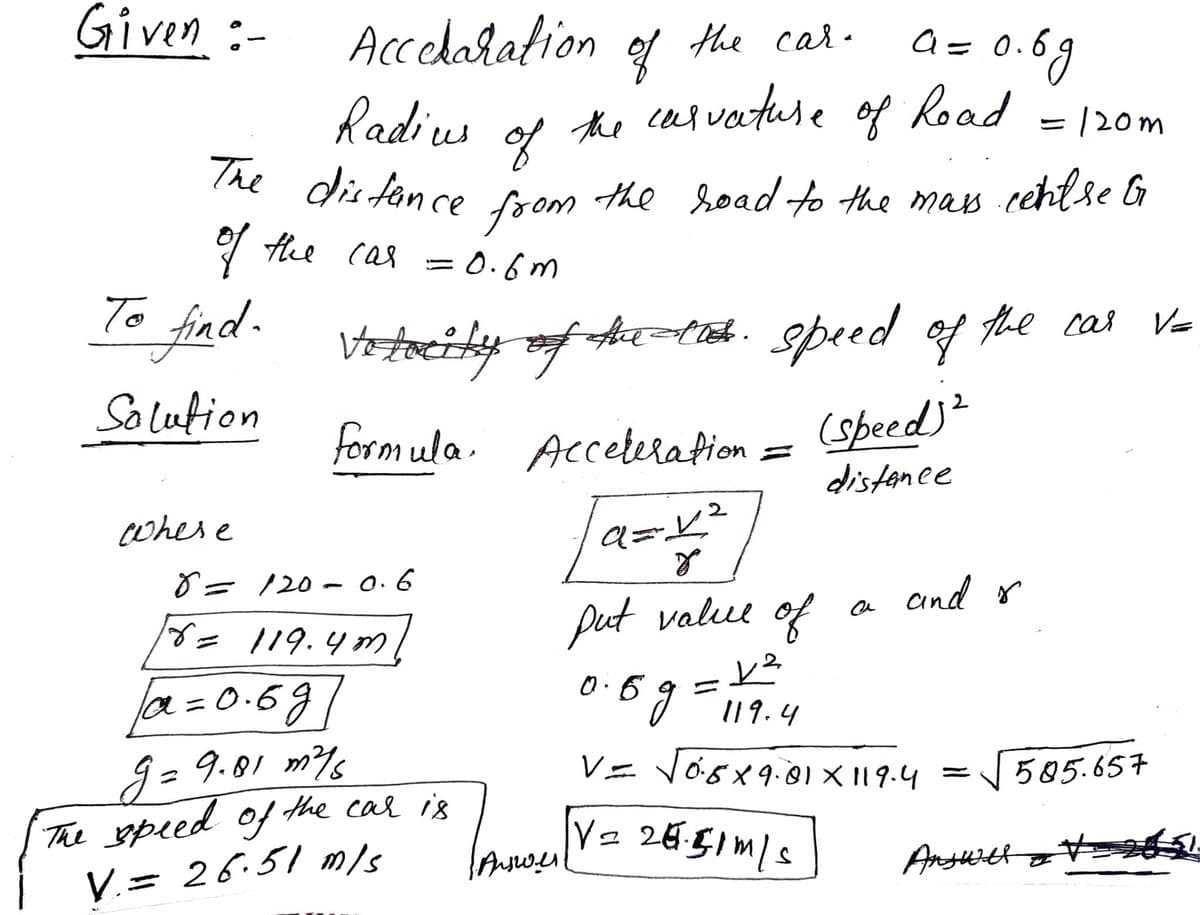 Given :- Accelaration of the car. a = 0.6g
Radius of the curvature of Road = 120m
The distance from the road to the mass centre G
of the car = 0.6m
To find. Velocity of the car. speed of the car V=
Solution
formula. Acceleration = (speed)²
distance
where
a = V²
r
r = 120 - 0.6
r = 119.4m
put value of a and r
a = 0.6g
0.6g = V²
119.4
g = 9.81 m²/s
V = √0.5×9.81×119.4 = √585.657
The speed of the car is
V. = 26.51 m/s
Answer V = 26.51m/s
Answer = V = 26.51